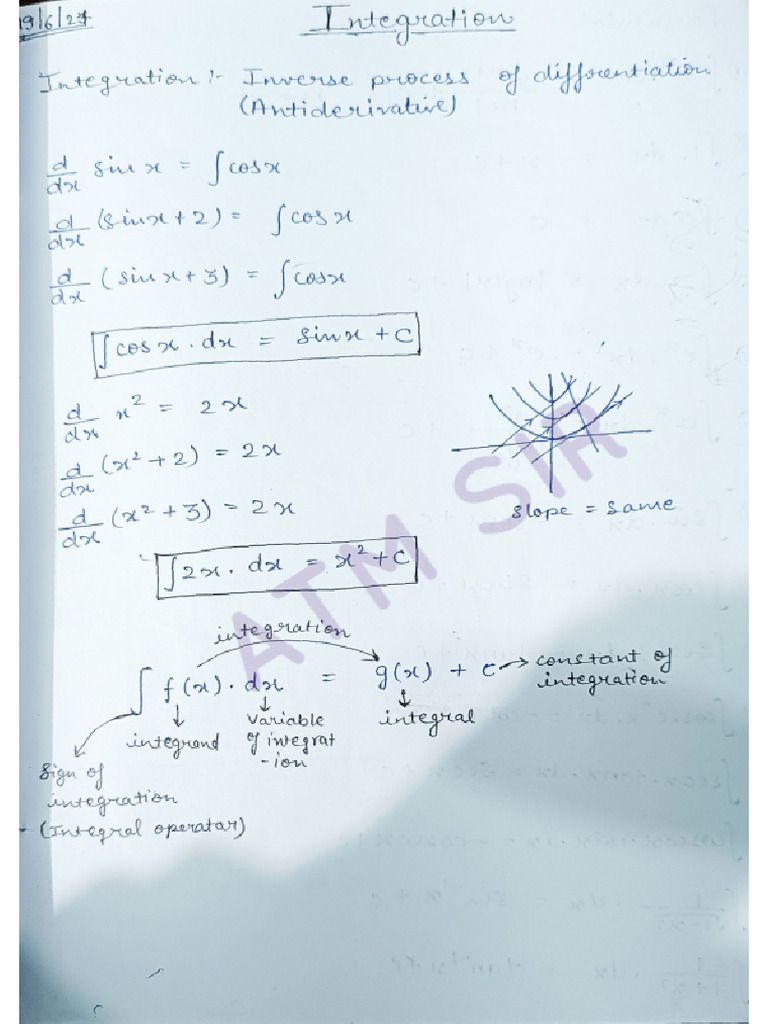 19/6/24
Integration
Integration :- Inverse process of differentiation
(Antiderivative)
d/dx sinx = ∫cosx
d/dx (sinx + 2) = ∫cosx
d/dx (sinx + 3) = ∫cosx
∫cosx . dx = sinx + C
d/dx x² = 2x
d/dx (x² + 2) = 2x
d/dx (x² + 3) = 2x
slope = same
∫2x . dx = x² + C
ATM SIR
integration
∫ f(x) . dx = g(x) + c → constant of
integration
integrand
variable
of integrat
-ion
integral
Sign of
integration
(Integral operatar)